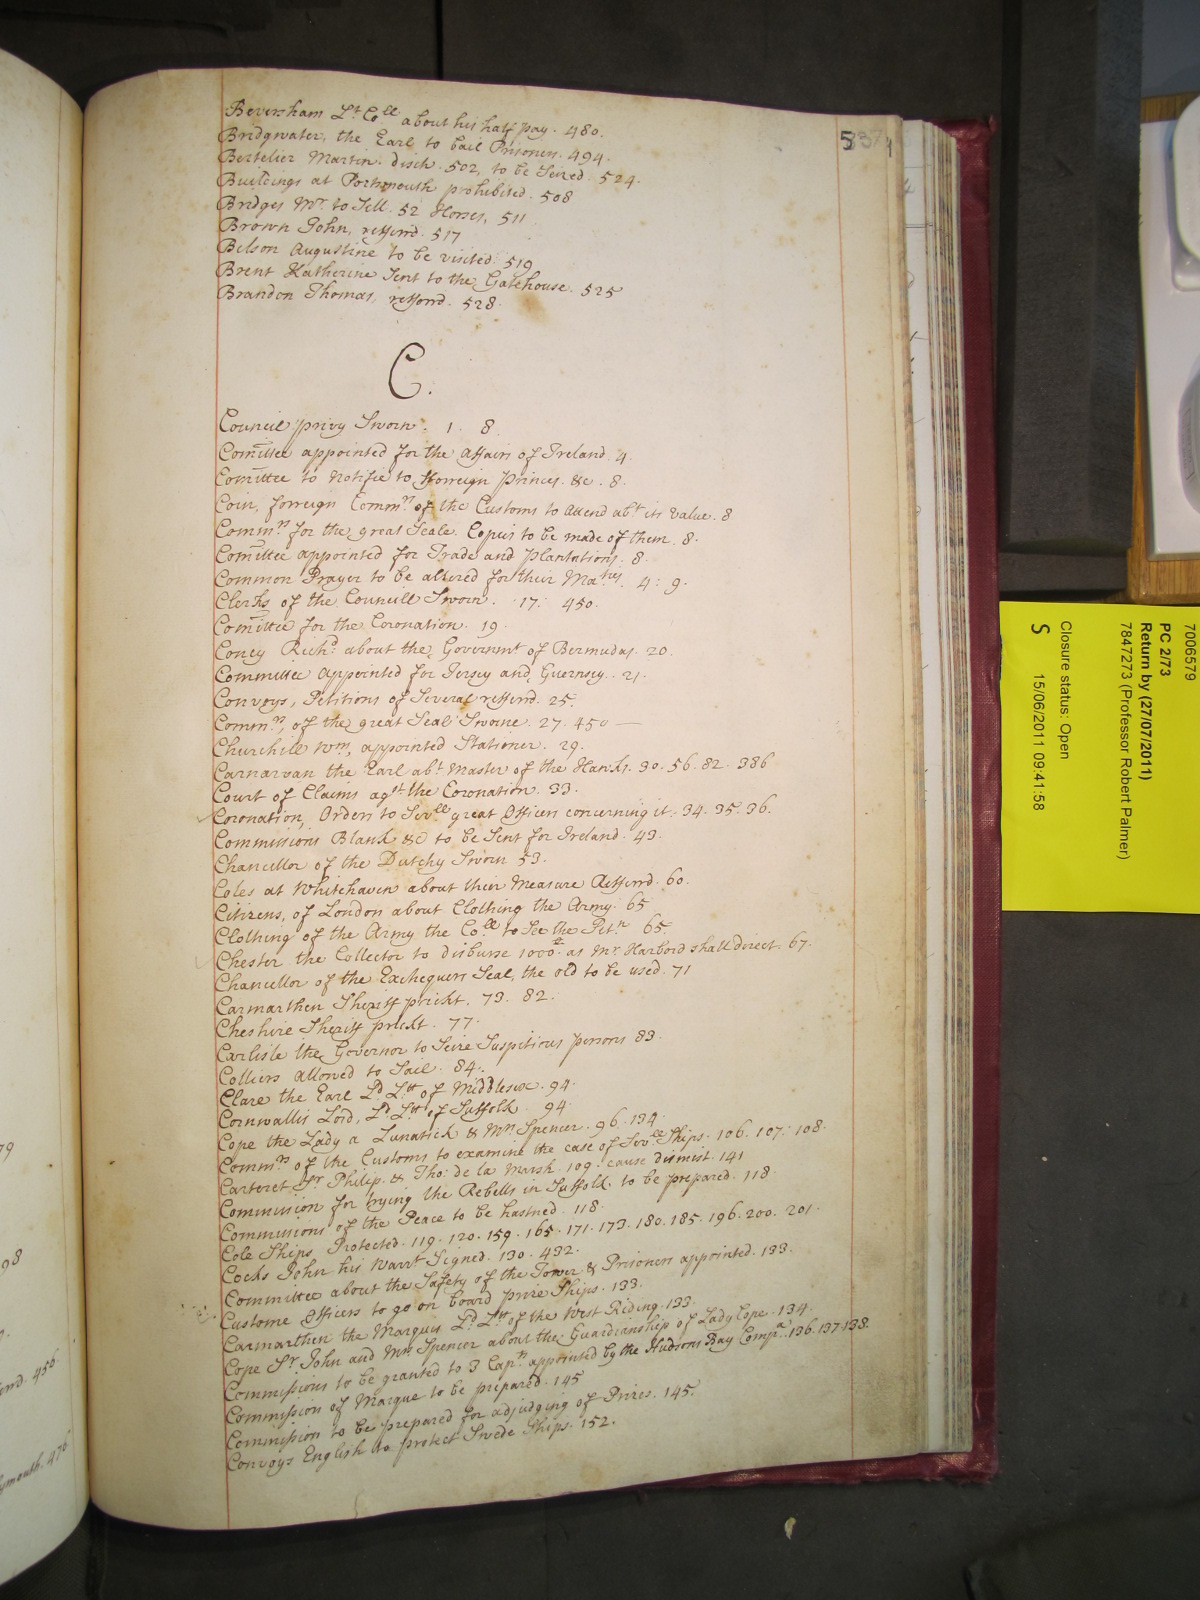 Beversham Lt Coll about his half pay. 480.
Bridgwater, the Earl to bail Prisoners. 494.
Bertelier Martin. disch. 502, to be Seized. 524.
Buildings at Portsmouth prohibited. 508
Bridges Mr. to Sell. 52 Horses, 511
Brown John, refferrd. 517
Belson Augustine to be visited. 519
Brent Katherine Sent to the Gatehouse. 525
Brandon Thomas, refferrd. 528.
C.
Council privy Sworn. 1. 8.
Comittee appointed for the Affairs of Ireland. 4.
Comittee to Notifie to fforreign Princes. &c. 8.
Coin, forreign Commrs of the Customs to attend abt its value. 8
Commrs for the great Seale. Copies to be made of them. 8.
Comittee appointed for Trade and Plantations. 8.
Common Prayer to be altered for their Maties. 4: 9.
Clerks of the Councill Sworn. 17. 450.
Comittee for the Coronation. 19.
Coney Richd. about the Governmt of Bermudas. 20.
Committee appointed for Jersey and Guernsey. 21.
Convoys, Petitions of Several refferrd. 25.
Commrs, of the great Seal Sworne. 27. 450 —
Churchill Wm, appointed Stationer. 29.
Carnarvan the Earl abt. Master of the Hawks. 30. 56. 82. 386
Court of Claims agst the Coronation. 33.
Coronation, Orders to Sevll great Officers concerning it. 34. 35. 36.
Commissions Blank &c to be Sent for Ireland. 43.
Chancellor of the Dutchy Sworn 53.
Coles at Whitehaven about their Measure Refferrd. 60.
Citizens, of London about Clothing the Army. 65
Clothing of the Army the Coll to See the Petn. 65.
Chester the Collector to disburse 1000£ as Mr. Harbord shall direct. 67.
Chancellor of the Exchequers Seal, the old to be used. 71
Carmarthen Sheriff prickt. 73. 82.
Cheshire Sheriff prickt. 77.
Carlisle the Governor to Seize Suspitious persons 83.
Colliers allowed to Sail. 84.
Clare the Earl Ld Ltt of Middlesex. 94.
Cornwallis Lord, Ld Ltt of Suffolk. 94.
Cope the Lady a Lunatick & Mrs Spencer. 96. 134.
Commrs of the Customs to examine the case of Sevll Ships. 106. 107. 108.
Carteret Sr Philip. & Tho: de la Marsh. 109. cause dismist. 141
Commission for trying the Rebells in Suffolk, to be prepared. 118
Commissions of the Peace to be hastned. 118.
Cole Ships Protected. 119. 120. 159. 165. 171. 173. 180. 185. 196. 200. 201.
Cocks John his Warrt Signed. 130. 432.
Committee about the Safety of the Tower & Prisoners appointed. 133.
Custome Officers to go on board prize Ships. 133.
Carmarthen the Marquis Ld Ltt of the West Riding. 133.
Cope Sr. John and Mrs Spencer about the Guardianship of Lady Cope. 134.
Commissions to be granted to 3 Capts. appointed by the Hudsons Bay Compa. 136. 137. 138.
Commission of Marque to be prepared. 145
Commission to be prepared for adjudging of Prizes. 145.
Convoys English to protect Swede Ships. 152.
79
98
456
Plymouth. 476
7006579
PC 2/73
Return by (27/07/2011)
7847273 (Professor Robert Palmer)
Closure status: Open
S 15/06/2011 09:41:58